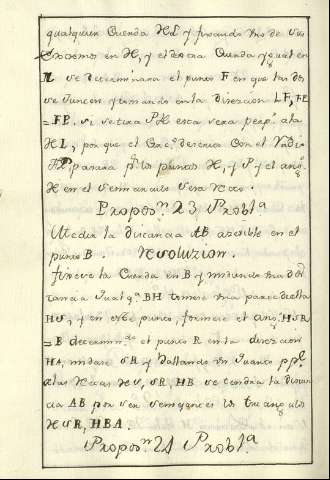 qualquier Cuerda HL y fixando uno de sus
extremos en H, y el de otra Cuerda ygual en
L se determinara el punto F en que las dos
se Juncen y tomando en la direccion LF, FE
= FP. si se tira PH esta sera perp.r a la
HL, por que el circ.º descrito con el Radio
FP pasara p.r los puntos H, y P y el ang.º
H en el semicirculo sera recto.
Propos.n 23 Probl.a
Medir la distancia AB acesible en el
punto B. Resoluzion.
fixese la Cuerda en B y midiendo una dis
tancia qualq.a BH tomese una parte de ella
HS, y en este punto, formese el ang.º HSR
= B determin.do el punto R en la direccion
HA, midase SR y hallando una quarta pp.l
a las rectas HS, SR, HB se tendra la distan
cia AB por ser semejantes los triangulos
HSR, HBA.
Propos.n 24 Probl.a